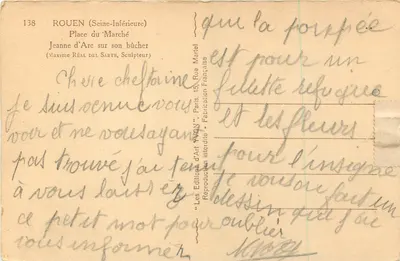 138 ROUEN (Seine-Inférieure)
Place du Marché
Jeanne d'Arc sur son bûcher
(Maxime Réal del Sarte, Sculpteur)
Chère cheftaine
je suis venue vous
voir et ne vous ayant
pas trouvé j'ai tenu
à vous laissez
ce petit mot pour
vous informer
"Les Editions d'Art Paris, 55, Rue Martel
Reproduction interdite - Fabrication Française
que la poupée
est pour un
fillette refugiée
et les fleurs
pour l'insigne
je vous ai fait un
dessin que j'ai
oublier